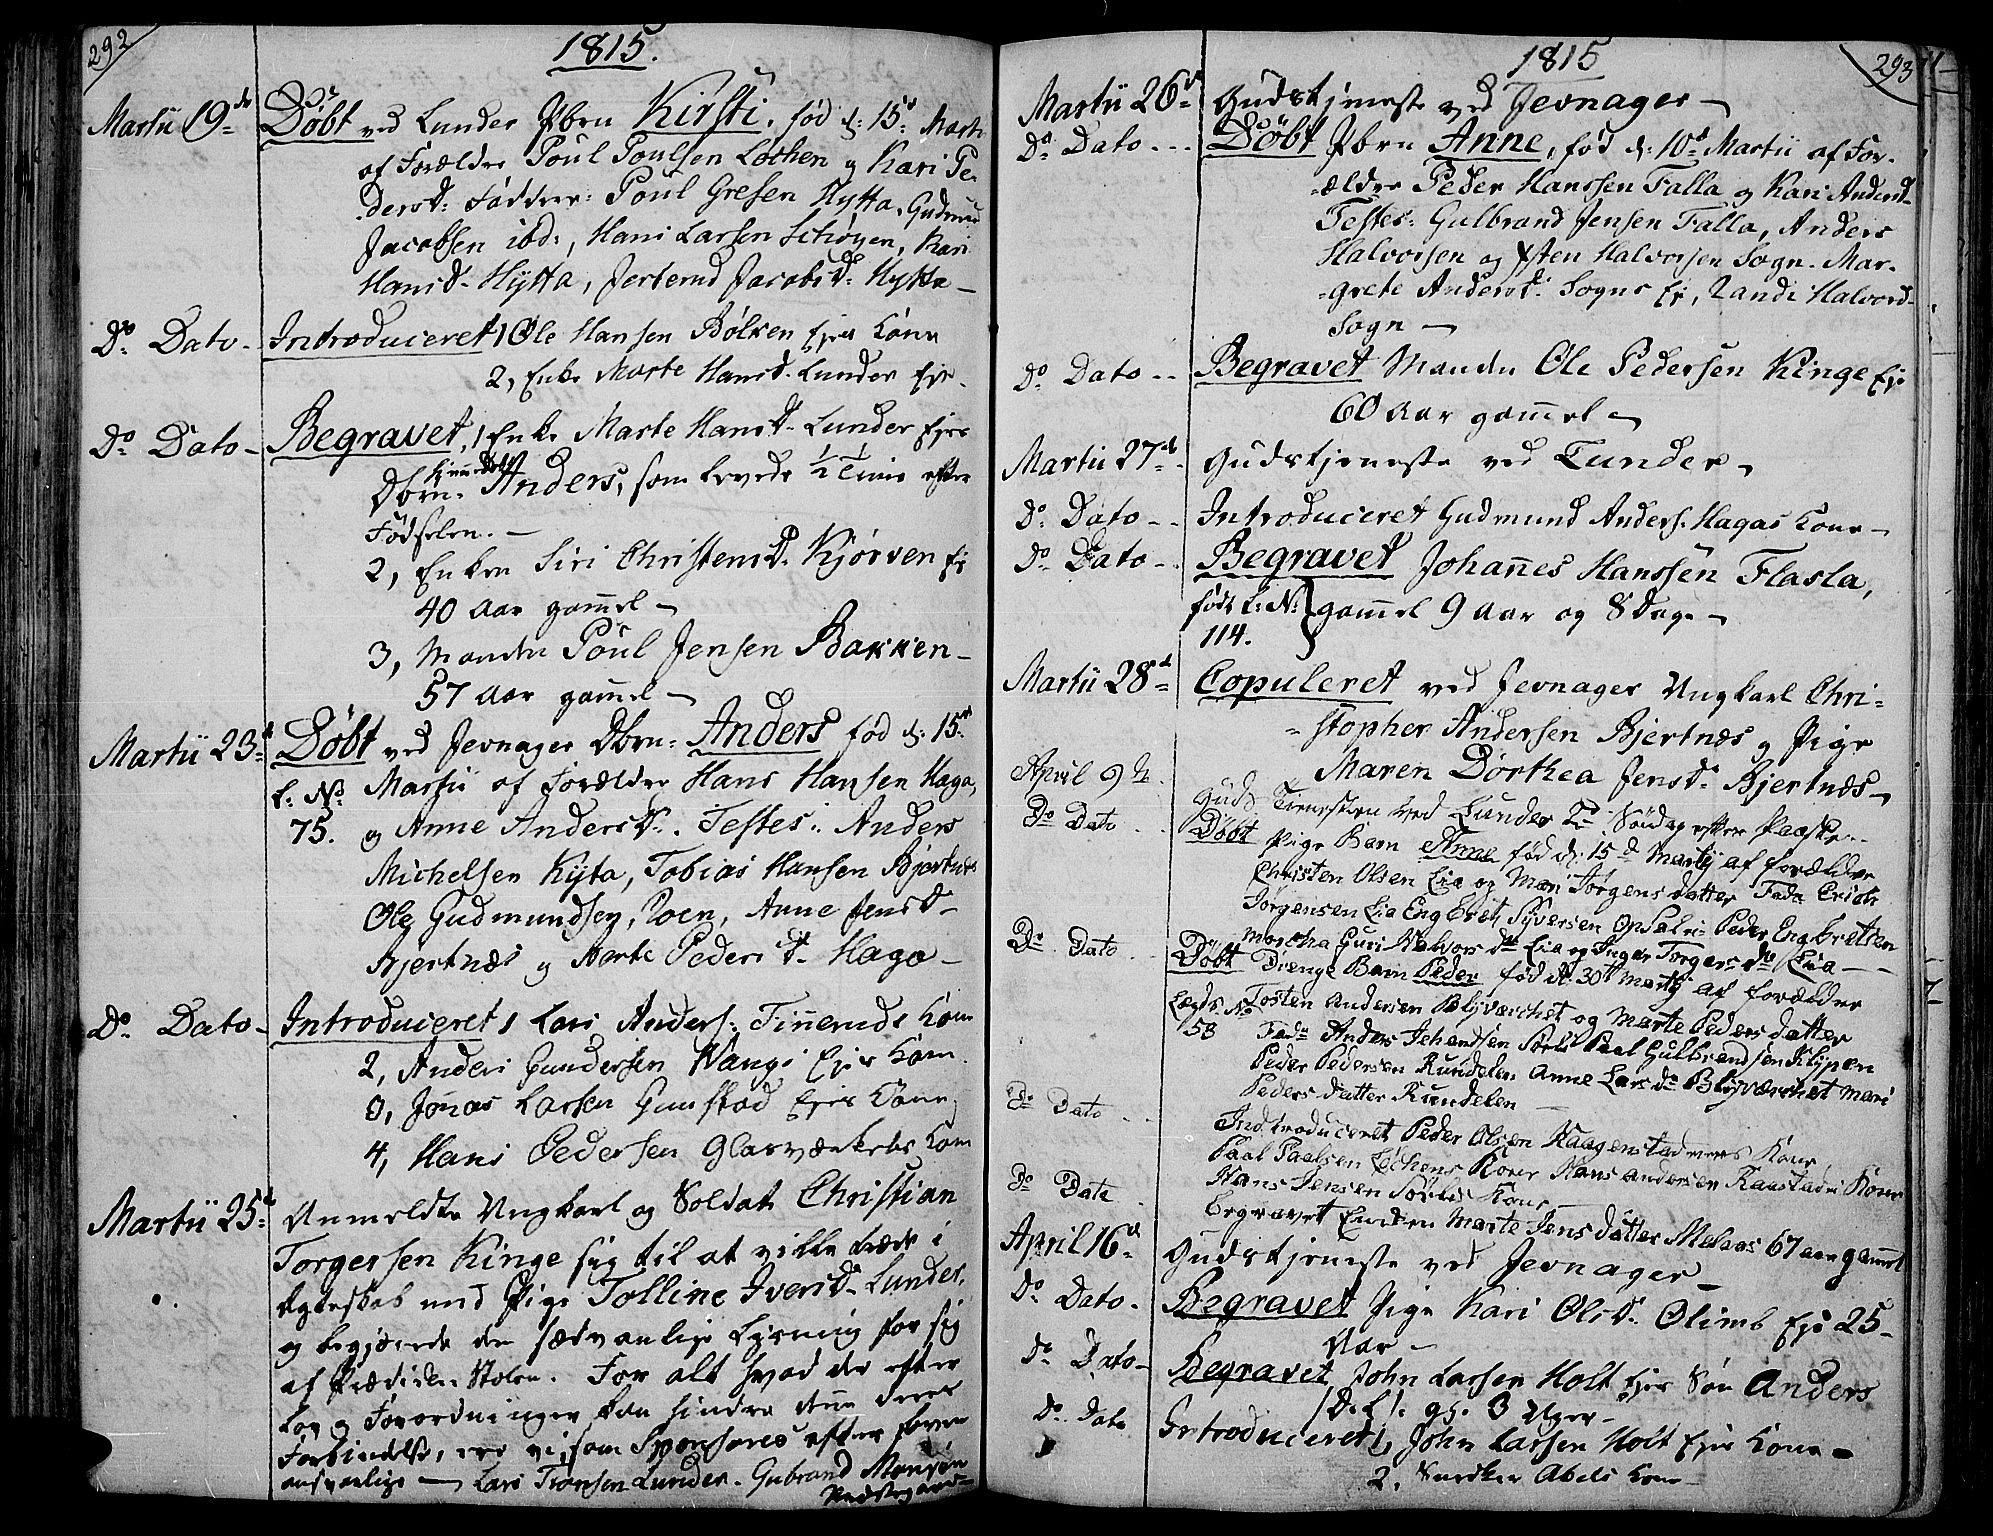 292
1815.
Martii 19de Döbt ved Lunder Pbrn Kirsti, fød d: 15d Marti
af Forældre Poul Poulsen Løchen og Kari Pe-
dersd: Faddere: Poul Gresen Hytta, Gudmun
Jacobsen ibd:, Hans Larsen Schøyen, Kari
Hansd. Hÿtta, Jertrud Jacobsd: Hytta —
Do Dato - Introduceret 1, Ole Hansen Bölken Ejes Kone
2, Enke Marte Hansd. Lunder Eje.
Do Dato - Begravet, 1, Enke Marte Hansd. Lunder Ejes
Dbrn. hiemmedøbt Anders, som levede 1/2 Time efter
Fødselen. —
2, Enken Siri Christensd. Kjørven Ej
40 Aar gammel —
3, Manden Poul Jensen Bakken -
57 Aar gammel —
Martii 23d Döbt ved Jevnager Dbrn: Anders fød d: 15d
L: No Martii af Forældre Hans Hansen Haga
75. og Anne Andersd. Testes: Anders
Michelsen Kÿta, Tobias Hansen Bjertnæs
Ole Gudmundsen, Roen, Anne Jensd.
Bjertnæs og Marte Pedersd. Haga —
Do Dato - Introduceret 1 Lars Anders: Finneruds Kone
2, Anders Gundersen Vangs Ejes Kone
3, Jonas Larsen Gunstad Ejes Kone
4, Hans Pedersen Glasværkets Kone
Martii 25d Anmeldte Ungkarl og Soldat Christian
Torgersen Kinge sig til at ville træde i
Ægteskab med Pige Tolline Iversd. Lunder,
og begjærede den sædvanlige Lysning for sig
af Prædikestolen. For alt hvad der efter
Lov og Forordninger kan hindre denne deres
Forbindelse, ere vi som Sponsores efter Loven
ansvarlige — Lars Tronsen Lunder. Gubrand Monsen
293
1815
Martii 26d Gudstjeneste ved Jevnager —
Do Dato - - - Döbt Pbrn Anne, fød d: 10d Martii af For-
ældre Peder Hanssen Falla og Kari Andersd.
Testes: Gulbrand Jensen Falla, Anders
Halvorsen og Østen Halvorsen Sogn. Mar-
grete Andersd. Sogns Ej, Randi Halvorsd.
Sogn —
Do Dato - - Begravet Manden Ole Pedersen Kinge Ejе
60 Aar gammel —
Martii 27d Gudstjeneste ved Lunder —
Do Dato - - Introduceret Gudmund Anders. Hagas Kone —
Do Dato - Begravet Johannes Hanssen Flasla,
født L: No gammel 9 Aar og 8 Dage —
114.
Martii 28d Copuleret ved Jevnager Ungkarl Chri-
stopher Andersen Bjertnæs og Pige
Maren Dorthea Jensd. Bjertnæs —
April 9de Guds Tienesten ved Lunder 2de Söndag efter Paaske
Do Dato - - Döbt Pige Barn Anne fød d: 15d Martij af forældre
Christen Olsen Lia og Mari Jörgens datter Fadd Erich
Jörgensen Lia Engebret Syversen Opsal Peder Engbretsen
Martha Guri Halvors dtr Lia og Inger Torgersdtr Lia —
Do Dato - - Döbt Drenge Barn Peder fød d. 30te Martij af forældre
Lægds No Tosten Andersen Blÿværchet og Marte Peders datter
58 Fadd Anders Johandsen Sörli Paal Gulbrandsen Klypen
Peder Pedersen Rundelen Anne Larsdtr Blyværchet Mari
Peders datter Rundelen —
Do Dato - - Indtroduceret Peder Olsen Kaagenstadmoens Kone
Paal Paalsen Løchens Kone Hans Andersen Raastads Kone
Hans Jensen Sörlis Kone
Do Date - Begravet Enken Marte Jens datter Melaas 67 aar gammel
April 16d Gudstjeneste ved Jevnager
Do Dato - Begravet Pige Kari Olsd. Olimb Ejе 25-
Aar —
Do Dato - Begravet John Larsen Holt Ejes Søn Anders
/D.L/. gl. 3 Uger -
Do Dato Introduceret 1, John Larsen Holt Ejes Kone —
2. Snedker Abels Kone —